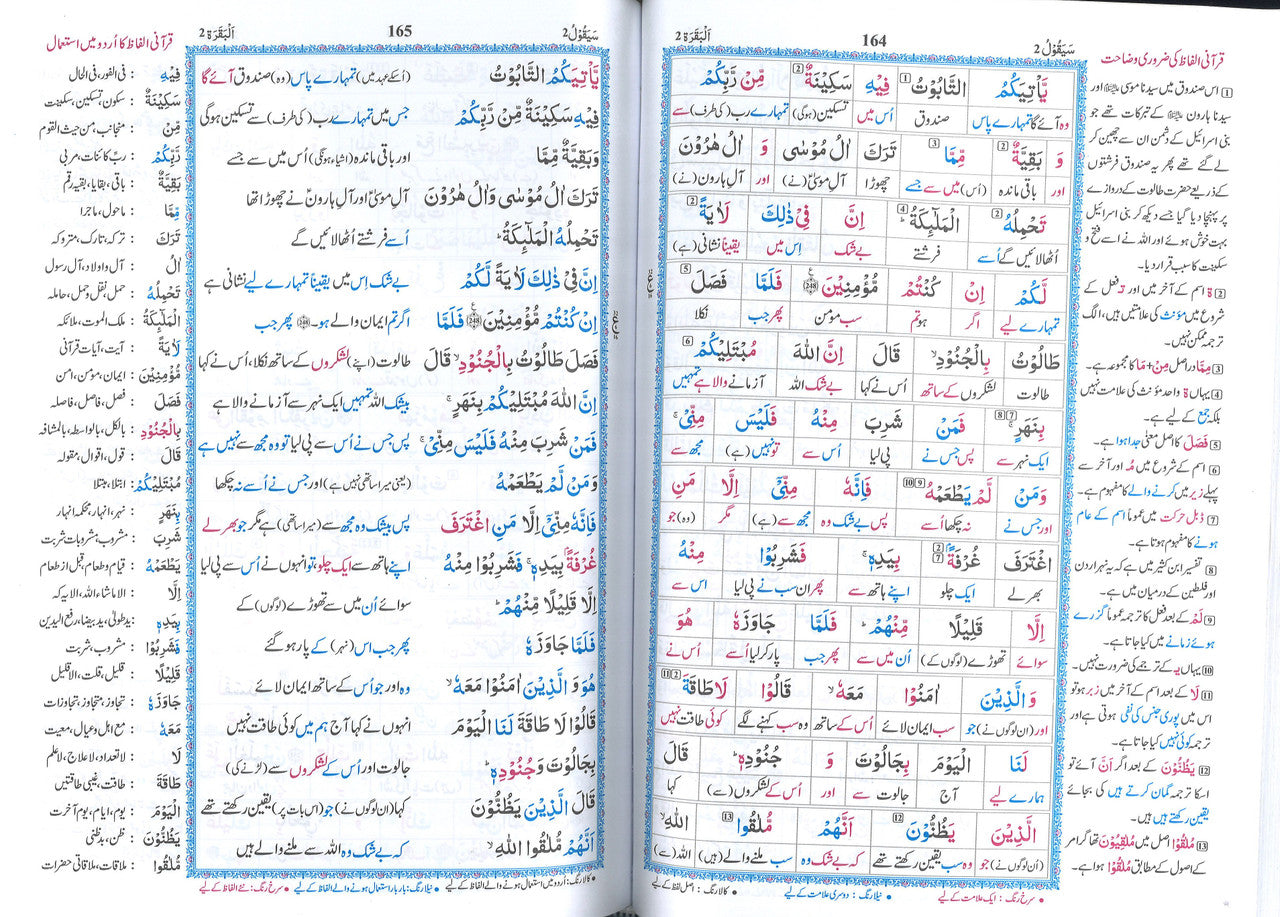 سَيَقُوْلُ 2
164
اَلْبَقَرَة 2
قرآنی الفاظ کی ضروری وضاحت
1 اس صندوق میں سیدنا موسیٰ اور
سیدنا ہارون کے تبرکات تھے جو
بنی اسرائیل کے دشمن ان سے چھین کر
لے گئے تھے پھر یہ صندوق فرشتوں
کے ذریعے حضرت طالوت کے دروازے
پر پہنچا دیا گیا جسے دیکھ کر بنی اسرائیل
بہت خوش ہوئے اور اللہ نے اسے فتح و
سکینت کا سبب قرار دیا۔
2 ةٌ اسم کے آخر میں اور تَـ فعل کے
شروع میں مؤنث کی علامتیں ہیں، الگ
ترجمہ ممکن نہیں۔
3 مِمَّا دراصل مِنْ + مَا کا مجموعہ ہے۔
4 یہاں ة واحد مؤنث کی علامت نہیں
بلکہ جمع کے لیے ہے۔
5 فَصَلَ کا اصل معنیٰ جدا ہوا ہے۔
6 اسم کے شروع میں مُـ اور آخر سے
پہلے زیر میں کرنے والے کا مفہوم ہے۔
7 ڈبل حرکت میں عموماً اسم کے عام
ہونے کا مفہوم ہوتا ہے۔
8 تفسیر ابن کثیر میں ہے کہ یہ نہر اردن
اور فلسطین کے درمیان میں ہے۔
9 لَمْ کے بعد فعل کا ترجمہ عموماً گزرے
ہوئے زمانے میں کیا جاتا ہے۔
10 یہاں یـ کے ترجمے کی ضرورت نہیں۔
11 لَا کے بعد اسم کے آخر میں زبر ہو تو
اس میں پوری جنس کی نفی ہوتی ہے اور
ترجمہ کوئی نہیں کیا جاتا ہے۔
12 يَظُنُّوْنَ کے بعد اگر اَنَّ آئے تو
اسکا ترجمہ گمان کرتے ہیں کی بجائے
یقین رکھتے ہیں ہیں۔
13 مُلٰقُوْا اصل میں مُلَاقِيُوْنَ تھا گرامر
کے اصول کے مطابق مُلٰقُوْا ہوا ہے۔
يَّاْتِيَكُمُ التَّابُوْتُ 1 فِيْهِ سَكِيْنَةٌ 2 مِّنْ رَّبِّكُمْ
وہ آئے گا تمہارے پاس صندوق اُس میں تسکین (ہوگی) تمہارے رب (کی طرف) سے
وَ بَقِيَّةٌ 2 مِّمَّا 3 تَرَكَ اٰلُ مُوْسٰى وَ اٰلُ هٰرُوْنَ
اور باقی ماندہ (اُس) میں سے جسے چھوڑا آلِ موسیٰ (نے) اور آلِ ہارون (نے)
تَحْمِلُهُ 2 الْمَلٰٓئِكَةُ ؕ 4 اِنَّ فِيْ ذٰلِكَ لَاٰيَةً 2
اُٹھالائیں گے اُسے فرشتے بے شک اِس میں یقیناً نشانی (ہے)
لَّكُمْ اِنْ كُنْتُمْ مُّؤْمِنِيْنَ 248 فَلَمَّا فَصَلَ 5
تمہارے لیے اگر ہو تم سب مومن پھر جب نکلا
طَالُوْتُ بِالْجُنُوْدِ ۙ قَالَ اِنَّ اللّٰهَ مُبْتَلِيْكُمْ 6
طالوت لشکروں کے ساتھ اُس نے کہا بے شک اللہ آزمانے والا ہے تمہیں
بِنَهَرٍ ۚ 7 8 فَمَنْ شَرِبَ مِنْهُ فَلَيْسَ مِنِّيْ ۚ
ایک نہر سے پس جس نے پی لیا اُس سے تو نہیں (ہے) مجھ سے
وَمَنْ لَّمْ يَطْعَمْهُ 9 10 فَاِنَّهٗ مِنِّيْٓ اِلَّا مَنِ
اور جس نے نہ چکھا اُسے پس بے شک وہ مجھ سے (ہے) مگر (وہ) جو
اغْتَرَفَ غُرْفَةًۢ 2 7 بِيَدِهٖ ۚ فَشَرِبُوْا مِنْهُ
بھر لے ایک چلو اپنے ہاتھ سے پھر ان سب نے پی لیا اس سے
اِلَّا قَلِيْلًا مِّنْهُمْ ؕ فَلَمَّا جَاوَزَهٗ هُوَ
سوائے تھوڑے (لوگوں کے) اُن میں سے پھر جب پار کر لیا اُسے اُس نے
وَالَّذِيْنَ اٰمَنُوْا مَعَهٗ ۙ قَالُوْا لَا طَاقَةَ 2 11
اور (ان لوگوں نے) جو سب ایمان لائے اُس کے ساتھ وہ سب کہنے لگے کوئی طاقت نہیں
لَنَا الْيَوْمَ بِجَالُوْتَ وَ جُنُوْدِهٖ ؕ قَالَ
ہمارے لیے آج جالوت سے اور اُس کے لشکروں (سے) کہا
الَّذِيْنَ يَظُنُّوْنَ 12 اَنَّهُمْ مُّلٰقُوا 13 اللّٰهِ ۙ
(اُن لوگوں نے) جو وہ سب یقین رکھتے تھے کہ بے شک وہ سب ملنے والے (ہیں) اللہ (سے)
• سرخ رنگ: ایک علامت کے لیے • نیلا رنگ: دوسری علامت کے لیے • کالا رنگ: اصل لفظ کے لیے
سَيَقُوْلُ 2
165
اَلْبَقَرَة 2
يَّاْتِيَكُمُ التَّابُوْتُ (اُسکے عہد میں) تمہارے پاس (وہ) صندوق آئے گا
فِيْهِ سَكِيْنَةٌ مِّنْ رَّبِّكُمْ جس میں تمہارے رب (کی طرف) سے تسکین ہوگی
وَبَقِيَّةٌ مِّمَّا اور باقی ماندہ (اشیاء ہونگی) اُس میں سے جسے
تَرَكَ اٰلُ مُوْسٰى وَاٰلُ هٰرُوْنَ آلِ موسیٰؑ اور آلِ ہارونؑ نے چھوڑا تھا
تَحْمِلُهُ الْمَلٰٓئِكَةُ ؕ اُسے فرشتے اُٹھالائیں گے
اِنَّ فِيْ ذٰلِكَ لَاٰيَةً لَّكُمْ بے شک اِس میں یقیناً تمہارے لیے نشانی ہے
اِنْ كُنْتُمْ مُّؤْمِنِيْنَ 248 فَلَمَّا اگر تم ایمان والے ہو۔ 248 پھر جب
فَصَلَ طَالُوْتُ بِالْجُنُوْدِ ۙ قَالَ طالوت (اپنے) لشکروں کے ساتھ نکلا، اُس نے کہا
اِنَّ اللّٰهَ مُبْتَلِيْكُمْ بِنَهَرٍ ۚ بیشک اللہ تمہیں ایک نہر سے آزمانے والا ہے
فَمَنْ شَرِبَ مِنْهُ فَلَيْسَ مِنِّيْ ۚ پس جس نے اُس سے پی لیا تو وہ مجھ سے نہیں ہے
وَمَنْ لَّمْ يَطْعَمْهُ (یعنی میرا ساتھی نہیں ہے) اور جس نے اُسے نہ چکھا
فَاِنَّهٗ مِنِّيْٓ اِلَّا مَنِ اغْتَرَفَ پس بیشک وہ مجھ سے (میرا ساتھی) ہے مگر جو بھر لے
غُرْفَةًۢ بِيَدِهٖ ۚ فَشَرِبُوْا مِنْهُ اپنے ہاتھ سے ایک چلو، تو انہوں نے اُس سے پی لیا
اِلَّا قَلِيْلًا مِّنْهُمْ ؕ سوائے اُن میں سے تھوڑے (لوگوں) کے
فَلَمَّا جَاوَزَهٗ پھر جب اس (نہر) کے پار ہو گئے
هُوَ وَالَّذِيْنَ اٰمَنُوْا مَعَهٗ ۙ وہ اور جو اُس کے ساتھ ایمان لائے
قَالُوْا لَا طَاقَةَ لَنَا الْيَوْمَ انہوں نے کہا آج ہم میں کوئی طاقت نہیں
بِجَالُوْتَ وَجُنُوْدِهٖ ؕ جالوت اور اُس کے لشکروں سے (لڑنے کی)
قَالَ الَّذِيْنَ يَظُنُّوْنَ کہا (ان لوگوں نے) جو (اس بات پر) یقین رکھتے تھے
اَنَّهُمْ مُّلٰقُوا اللّٰهِ ۙ کہ بے شک وہ اللہ سے ملنے والے ہیں
• کالا رنگ: اُردو میں استعمال ہونے والے الفاظ کے لیے • نیلا رنگ: بار بار استعمال ہونے والے الفاظ کے لیے • سرخ رنگ: نئے الفاظ کے لیے
قرآنی الفاظ کا اُردو میں استعمال
فِيْهِ : فی الفور، فی الحال
سَكِيْنَةٌ : سکون، تسکین، سکینت
مِّنْ : منجانب، من حیث القوم
رَّبِّكُمْ : ربّ کائنات، مربی
بَقِيَّةٌ : باقی، بقایا، بقیہ رقم
مِّمَّا : ماحول، ماجرا
تَرَكَ : ترکہ، تارک، متروکہ
اٰلُ : آل و اولاد، آل رسول
تَحْمِلُهُ : حمل، نقل و حمل، حاملہ
الْمَلٰٓئِكَةُ : ملک الموت، ملائکہ
لَاٰيَةً : آیت، آیات قرآنی
مُّؤْمِنِيْنَ : ایمان، مومن، امن
فَصَلَ : فصل، فاصل، فاصلہ
بِالْجُنُوْدِ : بالکل، بالواسطہ، بالمشافہ
قَالَ : قول، اقوال، مقولہ
مُبْتَلِيْكُمْ : ابتلا، مبتلا
بِنَهَرٍ : نہر، انہار، محکمہ انہار
شَرِبَ : مشروب، مشروبات، شربت
يَطْعَمْهُ : قیام و طعام، قبل از طعام
اِلَّا : الا ماشاء اللہ، الا یہ کہ
بِيَدِهٖ : ید طولیٰ، ید بیضا، رفع الیدین
فَشَرِبُوْا : مشروب، شربت
قَلِيْلًا : قلیل، قلت، الا قلیل
جَاوَزَهٗ : تجاوز، متجاوز، تجاوزات
مَعَهٗ : مع اہل و عیال، معیت
لَا : لا تعداد، لا علاج، لا علم
طَاقَةَ : طاقت، غیبی طاقتیں
الْيَوْمَ : یوم، ایام، یوم آخرت
يَظُنُّوْنَ : ظن، بدظنی
مُّلٰقُوا : ملاقات، ملاقاتی حضرات